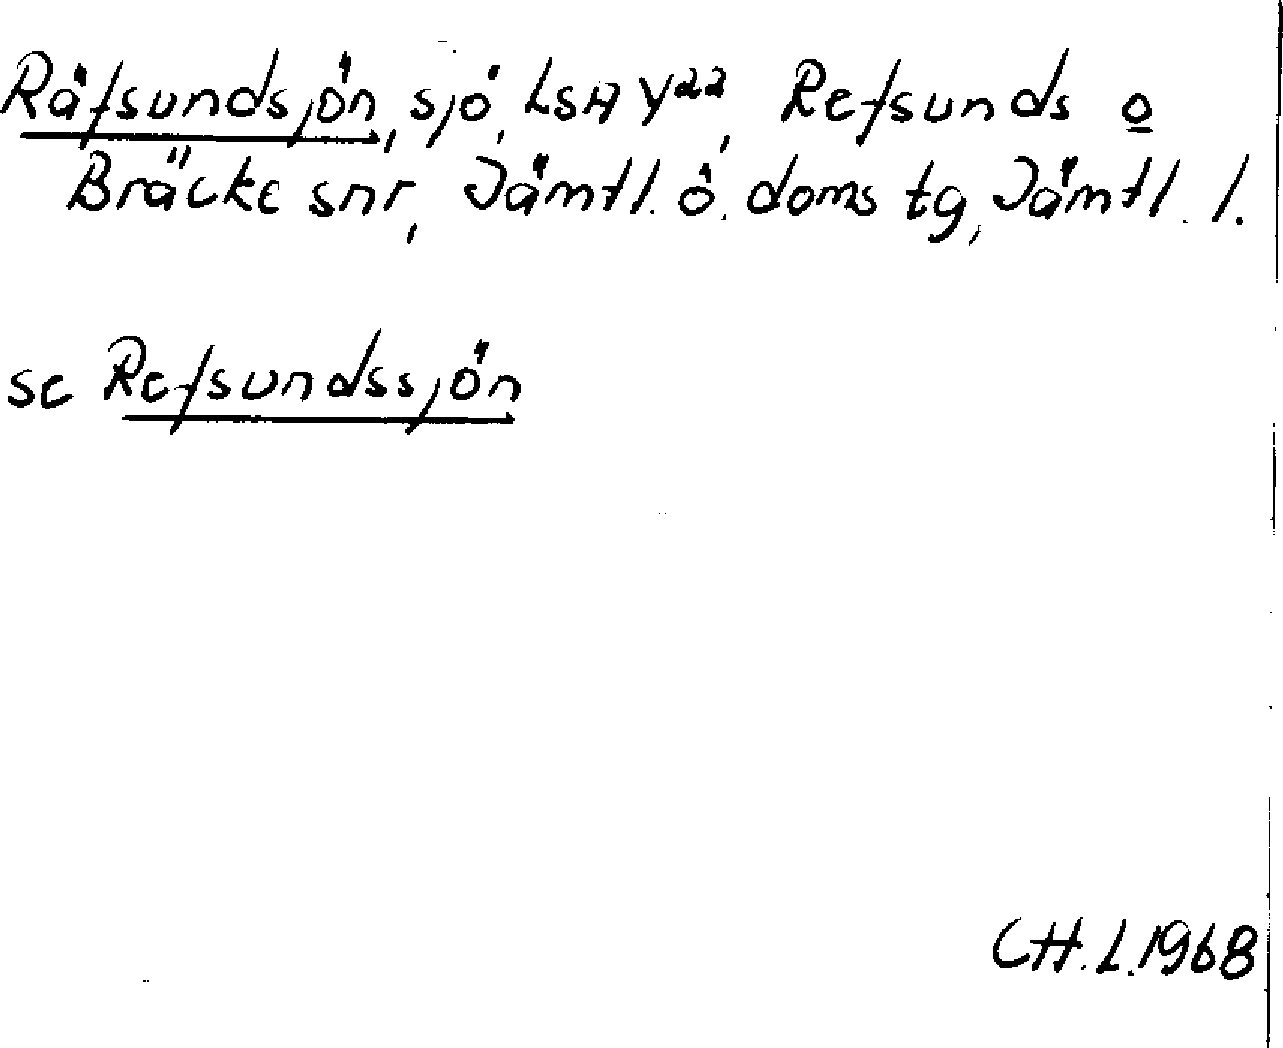 Räfsundsjön, sjö, LSA Y22, Refsunds o
Bräcke snr, Jämtl. ö. doms tg, Jämtl. l.
se Refsundssjön
CH.L.1968